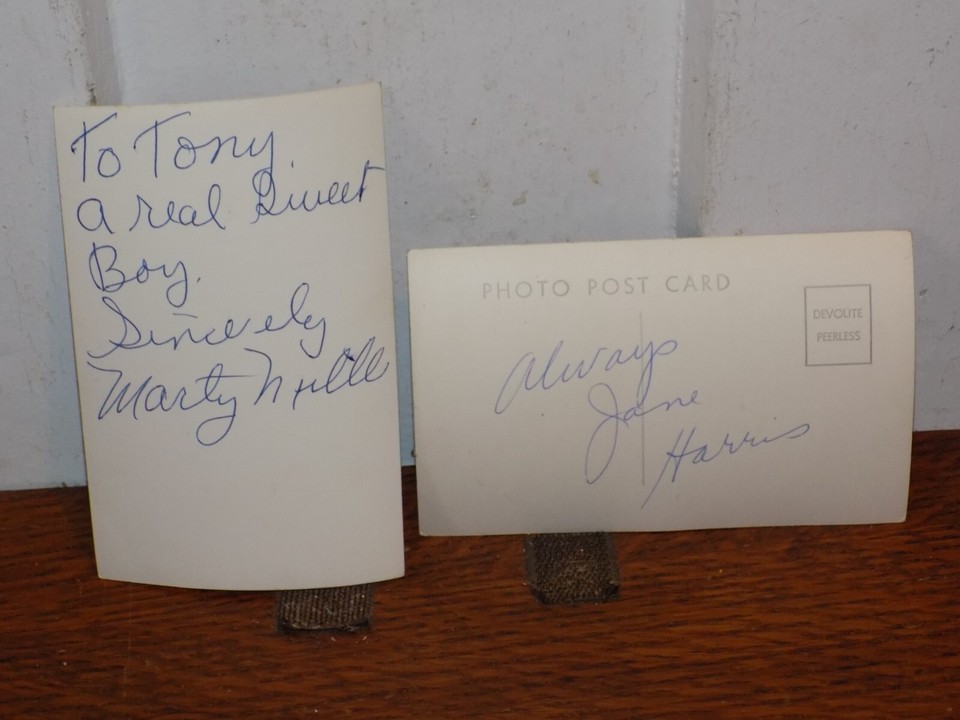 To Tony
a real Sweet
Boy.
Sincerely
Marty
PHOTO POST CARD
DEVOLITE
PEERLESS
Always
Jane
Harris